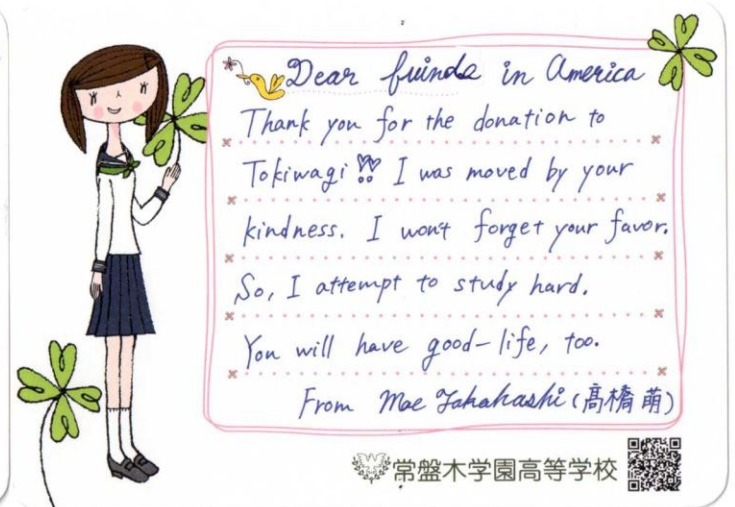 Dear friends in America
Thank you for the donation to
Tokiwagi!! I was moved by your
kindness. I won't forget your favor.
So, I attempt to study hard.
You will have good-life, too.
From Moe Takahashi (髙橋 萌)
常盤木学園高等学校